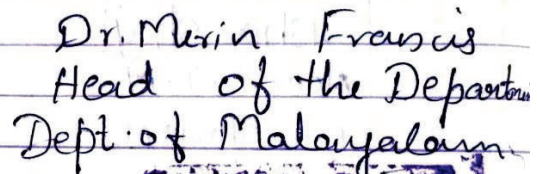 Dr. Merin Francis
Head of the Department
Dept. of Malayalam